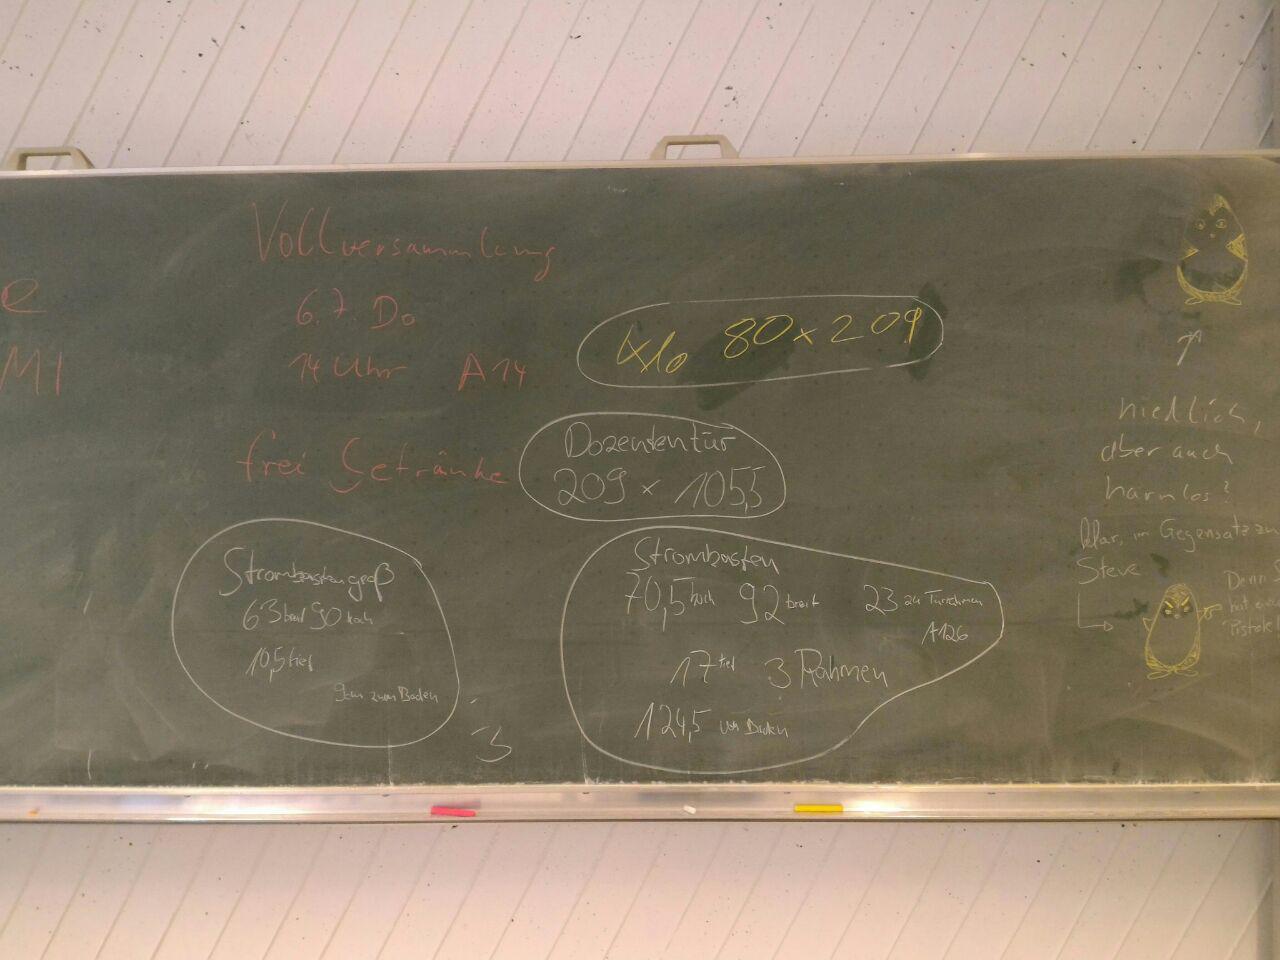 e
MI
Vollversammlung
6.7. Do
14 Uhr A14
frei Getränke
80 x 209
Dozententür
209 x 105,5
Stromkasten groß
63 breit 90 hoch
10,5 tief
9cm zum Boden
3
Stromkasten
70,5 hoch 92 breit 23 zu Türrahmen
A126
17 tief 3 Rahmen
124,5 vom Boden
niedlich,
aber auch
harmlos?
klar, im Gegensatz zu
Steve
Denn
hat
Pistole